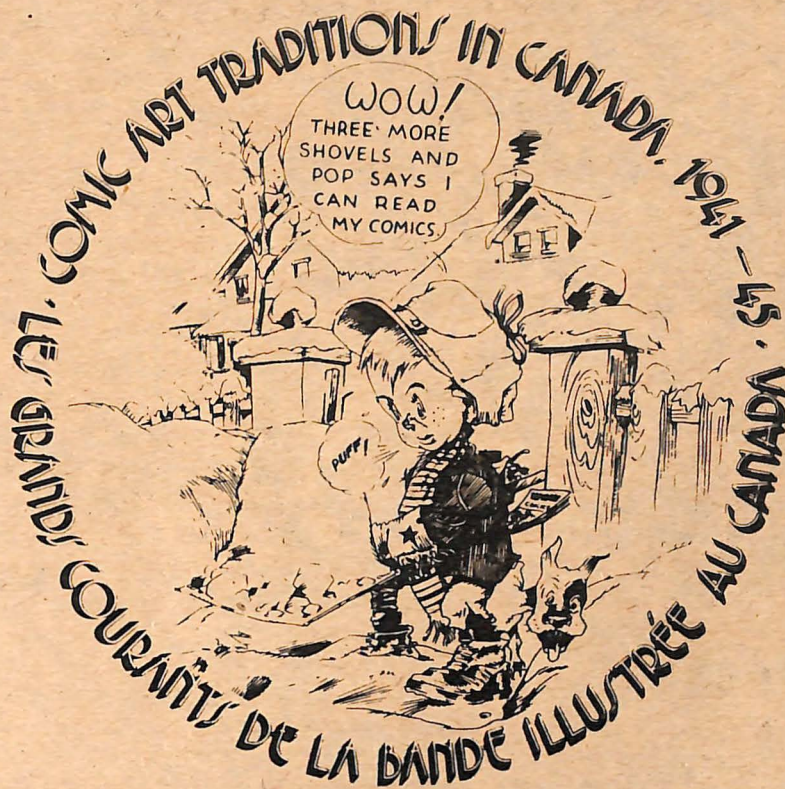 COMIC ART TRADITIONS IN CANADA, 1941-45 ·
LES GRANDS COURANTS DE LA BANDE ILLUSTRÉE AU CANADA ·
WOW!
THREE MORE
SHOVELS AND
POP SAYS I
CAN READ
MY COMICS.
PUFF!